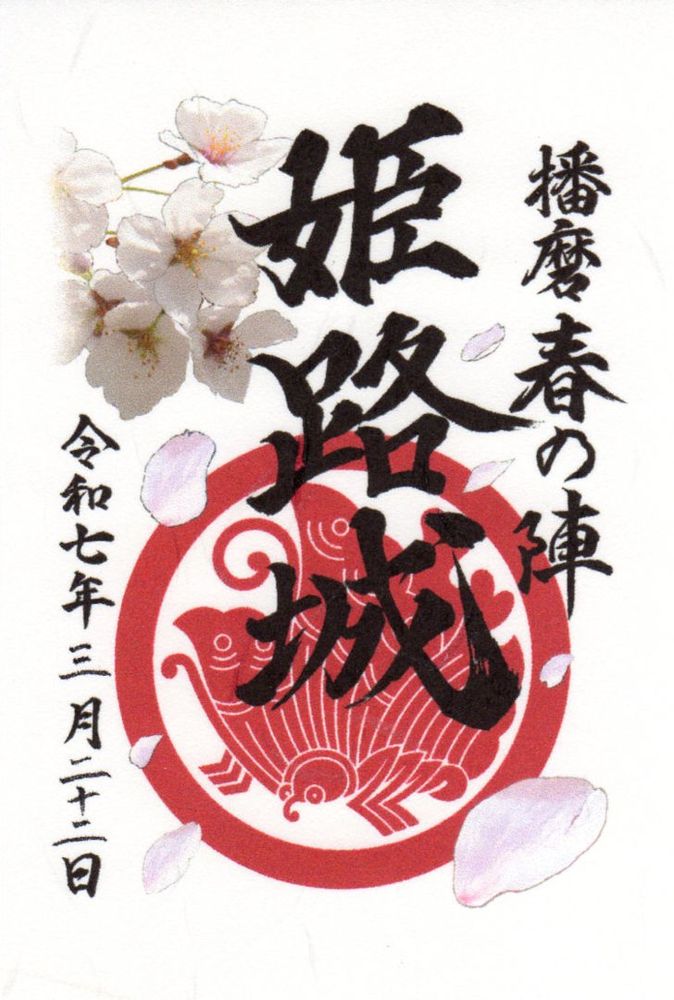 播磨春の陣
姫路城
令和七年三月二十二日